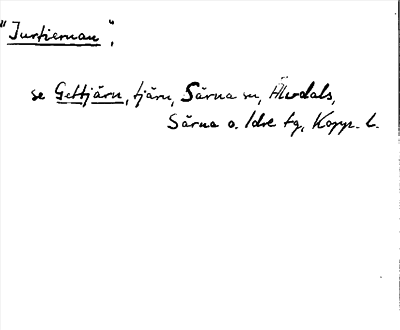 "Jurtiernan",
se Gettjärn, tjärn, Särna sn, Älvdals,
Särna o. Idre tg, Kopp. l.